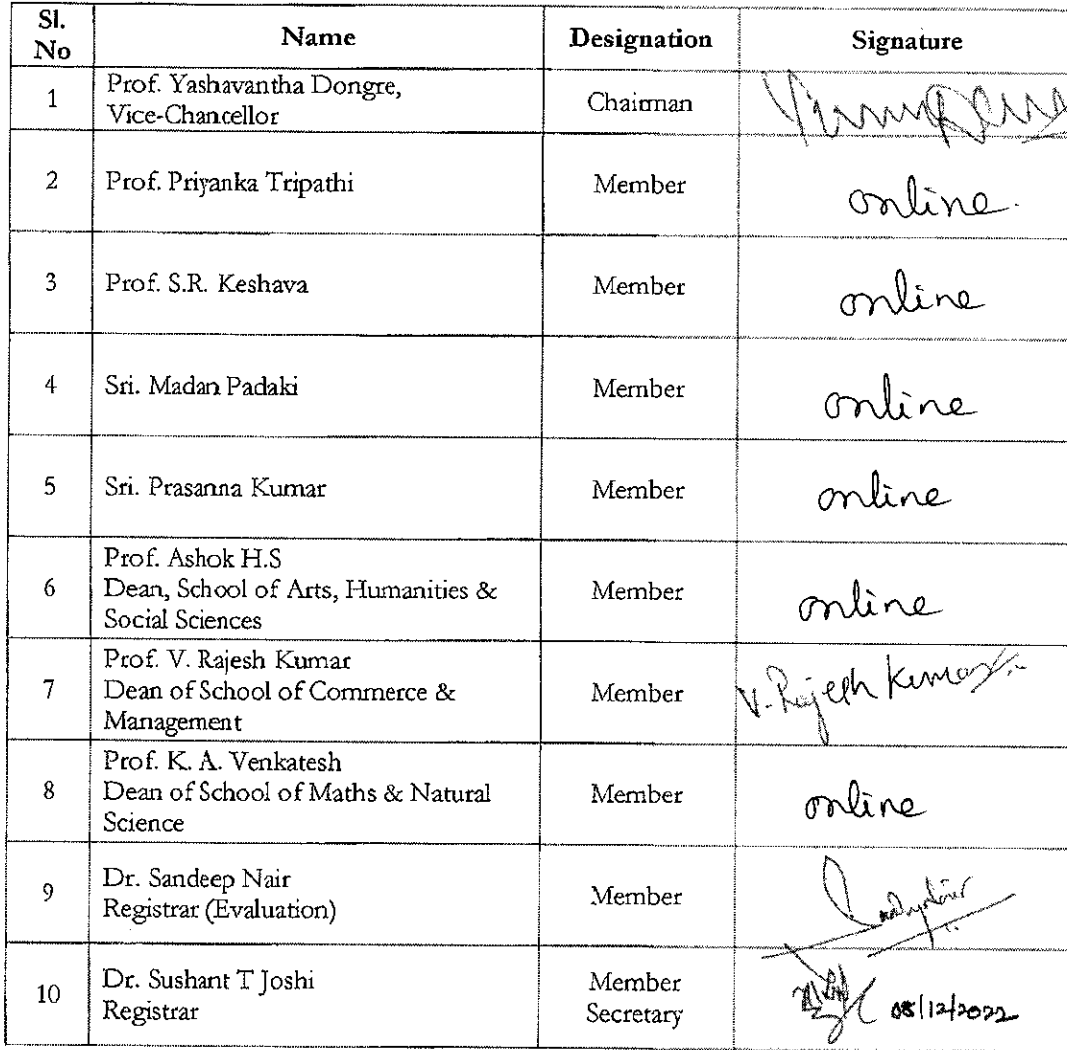 Sl. No
Name
Designation
Signature
1
Prof. Yashavantha Dongre,
Vice-Chancellor
Chairman
2
Prof. Priyanka Tripathi
Member
online.
3
Prof. S.R. Keshava
Member
online
4
Sri. Madan Padaki
Member
online
5
Sri. Prasanna Kumar
Member
online
6
Prof. Ashok H.S
Dean, School of Arts, Humanities &
Social Sciences
Member
online
7
Prof. V. Rajesh Kumar
Dean of School of Commerce &
Management
Member
V. Rajesh Kumar
8
Prof. K. A. Venkatesh
Dean of School of Maths & Natural
Science
Member
online
9
Dr. Sandeep Nair
Registrar (Evaluation)
Member
10
Dr. Sushant T Joshi
Registrar
Member
Secretary
08/12/2022